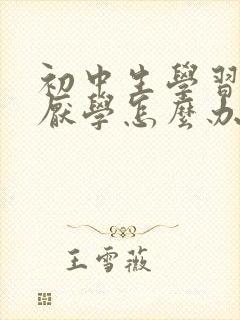 初中生學習
厭學怎麼办
王雪薇